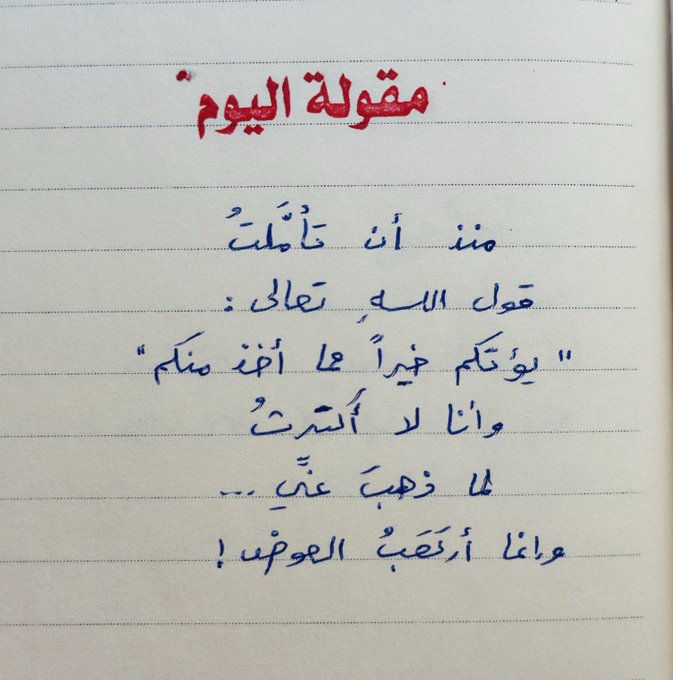 مقولة اليوم
منذ أن تأمَّلتُ
قول اللهِ تعالى :
" يؤتكم خيراً مما أخذ منكم "
وأنا لا أكترثُ
لما ذهبَ عنّي ...
وإنما أرتَقبُ العوضَ !